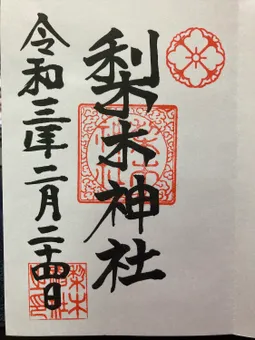 梨木神社
令和三年二月二十四日